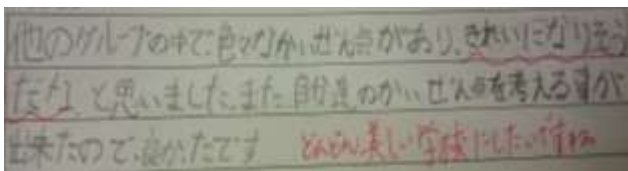 他のグループの中で、色々なかいぜん点があり、きれいになりそう
だな、と思いました。また自分達のかいぜん点を考える事が
出来たので、良かったです どんどん美しい学校にしたいですね